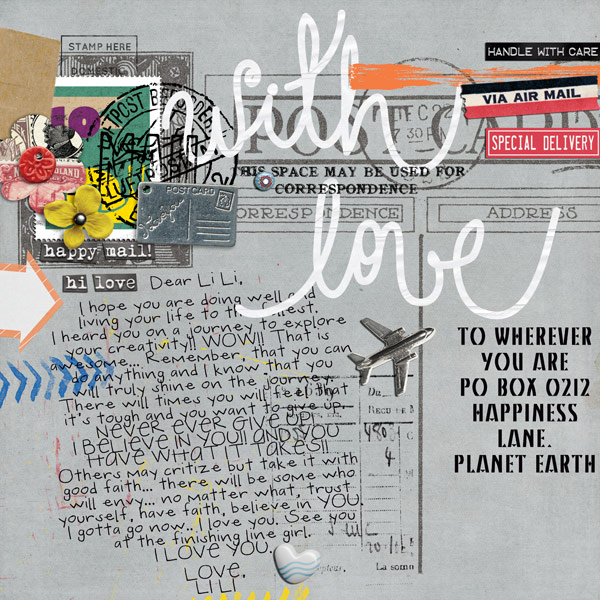 STAMP HERE
DOMESTIC
HANDLE WITH CARE
VIA AIR MAIL
SPECIAL DELIVERY
with
POST CARD
DEC 2
7 30 PM
HIS SPACE MAY BE USED FOR
CORRESPONDENCE
POSTCARD
CORRESPONDENCE
ADDRESS
love
happy mail!
hi love
Dear Li Li,
I hope you are doing well and
living your life to the fullest.
I heard you on a journey to explore
your creativity!! WOW!! That is
awesome... Remember that you can
do anything and I know that you
will truly shine on the journey.
There will times you will feel that
it's tough and you want to give up.
NEVER EVER GIVE UP!
I BELIEVE IN YOU!! AND YOU
HAVE WHAT IT TAKES!!
Others may critize but take it with
good faith... there will be some who
will envy... no matter what, trust
yourself, have faith, believe in YOU.
I gotta go now.. I love you. See you
at the finishing line girl.
I LOVE YOU.
LOVE,
LI LI
TO WHEREVER
YOU ARE
PO BOX 0212
HAPPINESS
LANE.
PLANET EARTH
Du
480
4
La som